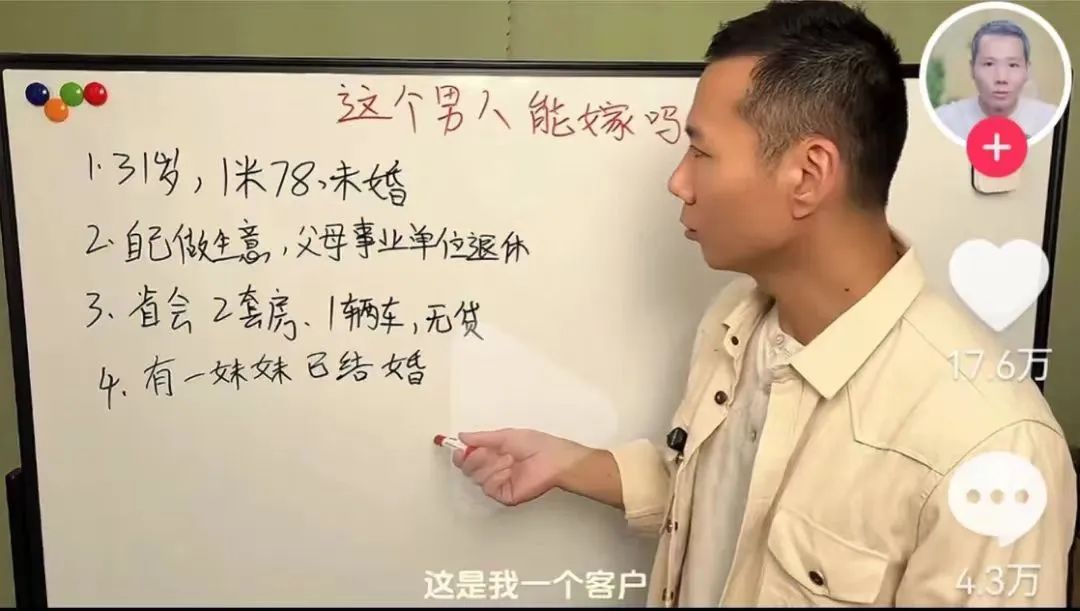 这个男人能嫁吗
1.31岁,1米78、未婚
2.自己做生意,父母事业单位退休
3.省会2套房、1辆车,无贷
4.有一妹妹已结婚
17.6万
4.3万
这是我一个客户